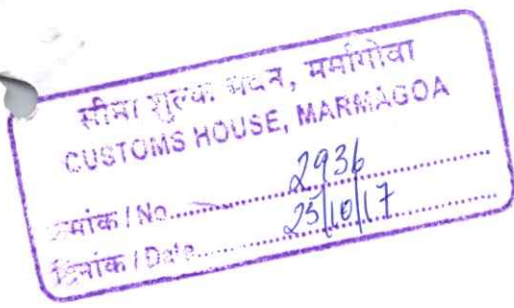 सीमा शुल्क भवन, मर्मागोवा
CUSTOMS HOUSE, MARMAGOA
क्रमांक / No. 2936
दिनांक / Date 25/10/17